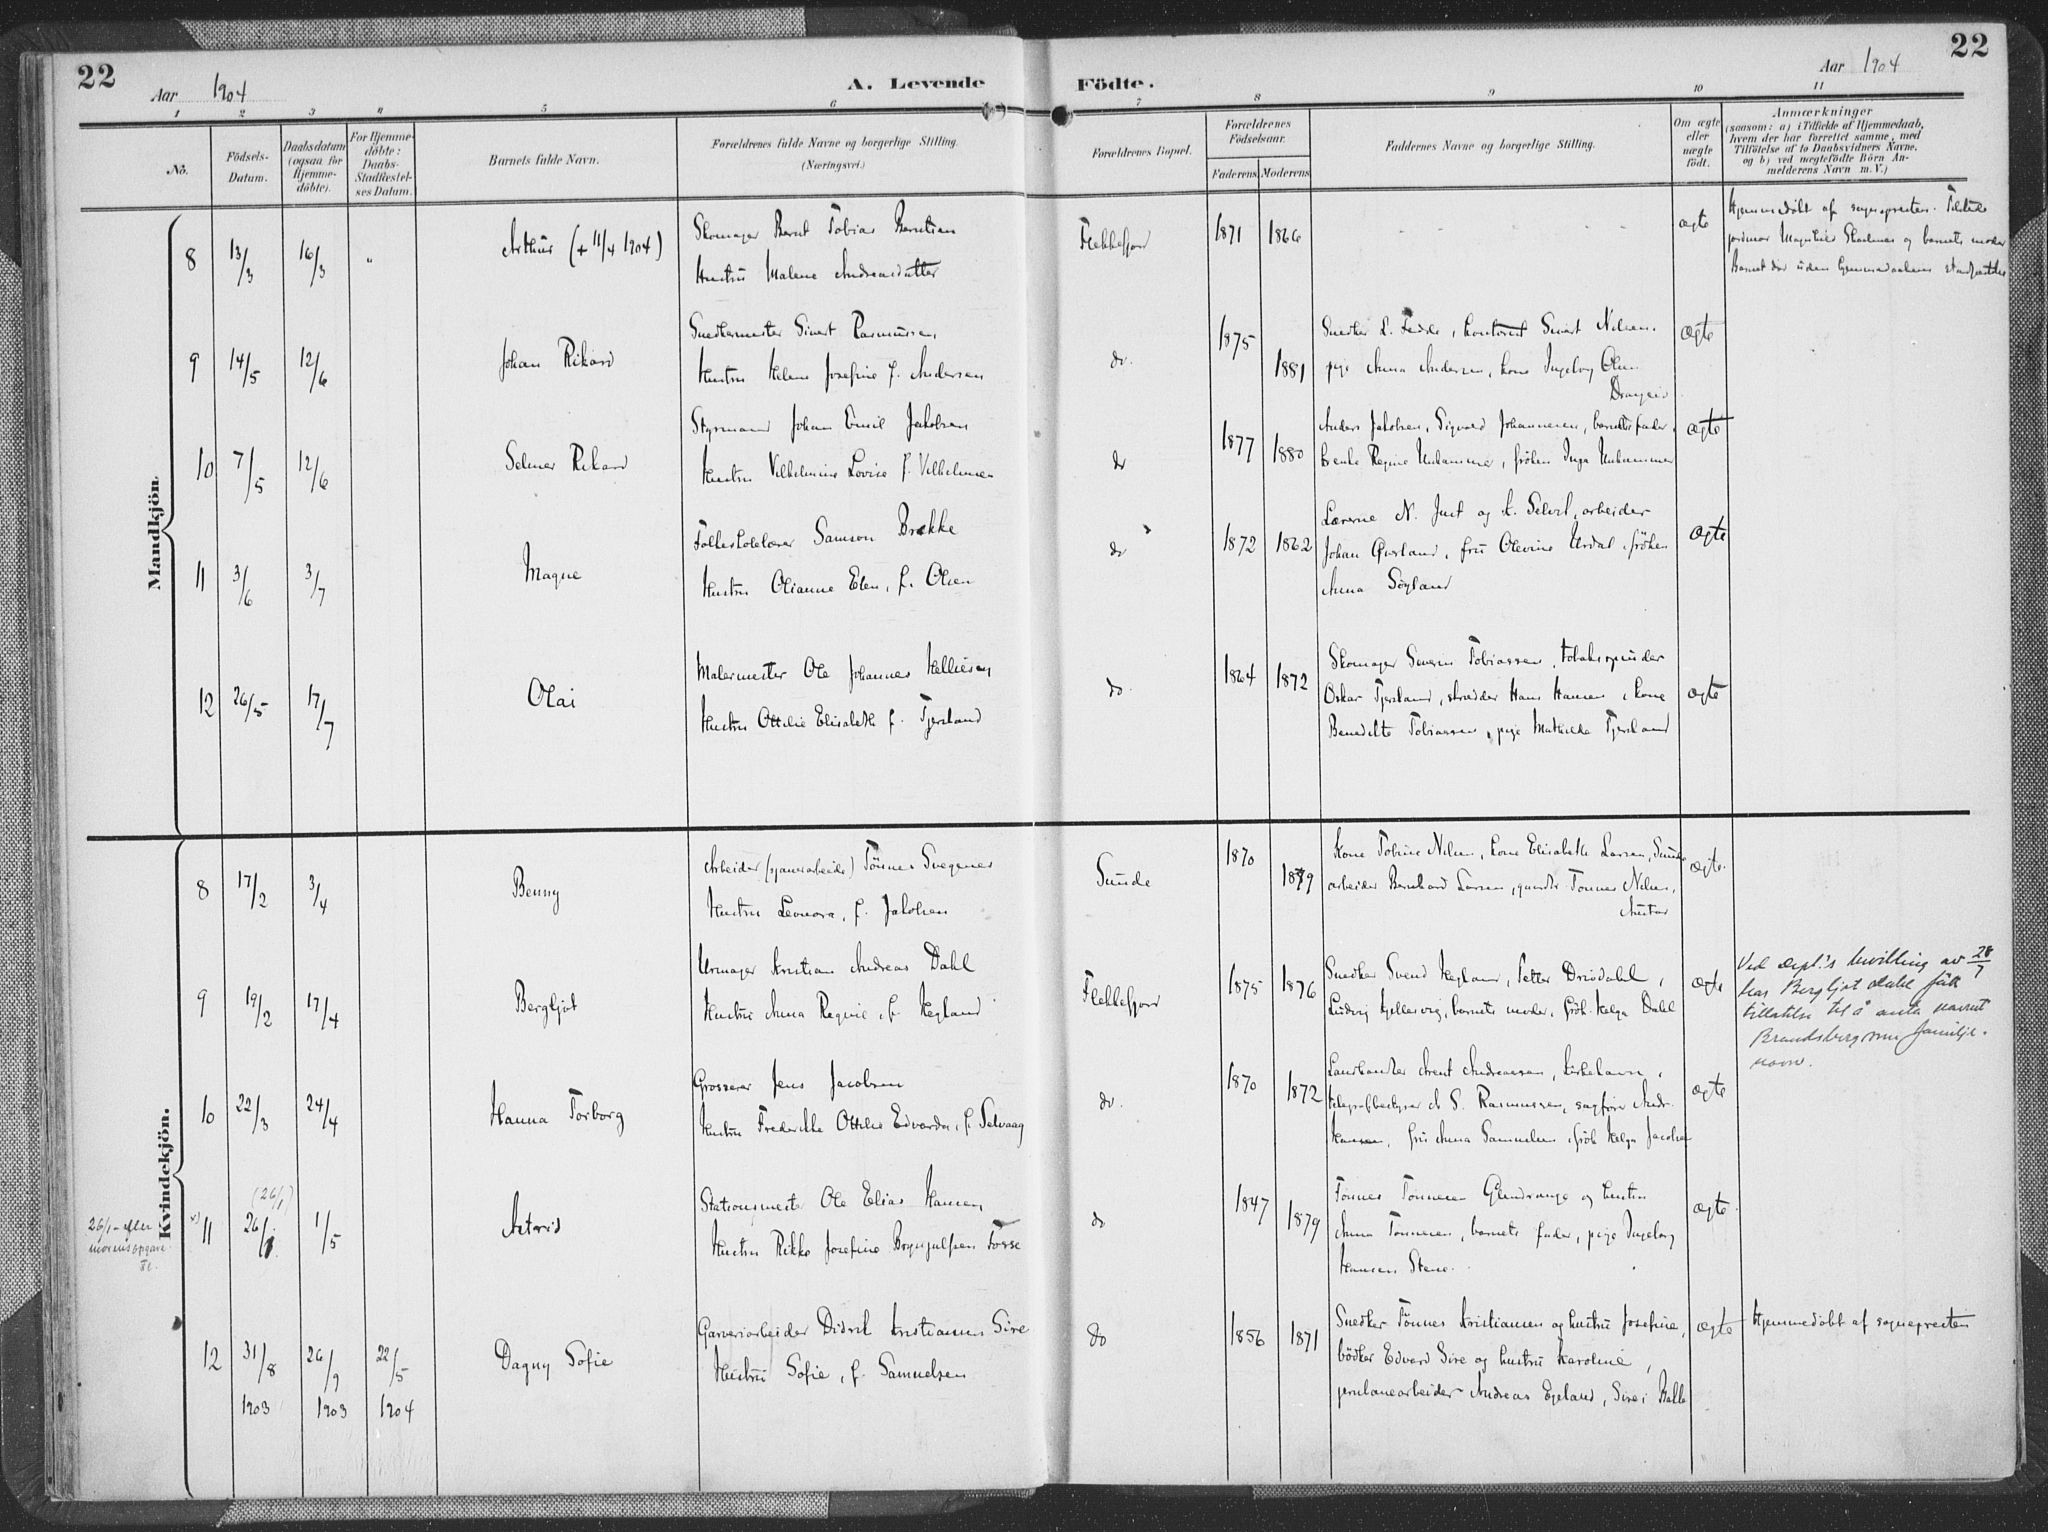 22
Aar 1904
A. Levende
Födte.
Aar 1904
22
1 2 3 4 5 6 7 8 9 10 11
No.
Födsels-
Datum.
Daabsdatum
(ogsaa for
Hjemme-
döbte).
For Hjemme-
döbte:
Daabs-
Stadfæstel-
ses Datum.
Barnets fulde Navn.
Forældrenes fulde Navne og borgerlige Stilling.
(Næringsvei.)
Forældrenes Bopæl.
Forældrenes
Födselsaar.
Faderens Moderens
Faddernes Navne og borgerlige Stilling.
Om ægte
eller
uægte
födt.
Anmærkninger
(saasom: a) i Tilfælde af Hjemmedaab,
hvem der har forrettet samme, med
Tilföielse af to Daabsvidners Navne,
og b) ved uægtefödte Börn An-
melderens Navn m. V.)
Mandkjön.
8 13/3 16/3 " Arthur (+ 11/4 1904)
Skomager Bernt Tobias Berntsen
Hustru Malene Andreasdatter
Flekkefjord 1871 1866
ægte
Hjemmedöbt af sognepresten.
jordmor og barnets moder
Barnet döde uden
9 14/5 12/6 Johan Rikard
Snedkermester Sivert Rasmussen,
Hustru Helene Josefine f. Andersen
do. 1875 1881
Snedker L. Fedde, Sivert Nilsen,
pige Anna Andersen, kone Ingeborg Olsen
Drangeid.
ægte
10 7/5 12/6 Selmer Rikard
Styrmand Johan Emil Jakobsen
Hustru Vilhelmine Lovise f. Vilhelmsen
do 1877 1880
Anders Jakobsen, Sigvald Johannesen, barnets fader,
enke Regine Unhammer, fröken Inga Unhammer
ægte
11 3/6 3/7 Magne
Folkeskolelærer Samson Brække
Hustru Olianne Elen, f. Olsen
do 1872 1862
Lærerne N. Just og K. Selvik, arbeider
Johan Överland, fru Olevine Urdal, fröken
Anna Söyland
ægte
12 26/5 17/7 Olai
Malermester Ole Johannes Helliesen
Hustru Ottilie Elisabeth f. Tjersland
do. 1864 1872
Skomager Severin Tobiassen, tobakspinder
Oskar Tjersland, skrædder Hans Hansen, kone
Benedikte Tobiassen, pige Mathilde Tjersland
ægte
Kvindekjön.
8 17/2 3/4 Benny
Arbeider (spanerarbeide) Tönnes Svegenes
Hustru Leonora, f. Jakobsen
Sunde 1870 1879
Kone Tobine Nilsen, kone Elisabeth Larsen, Sunde
arbeider Bernhard Larsen, Tonnes Nilsen,
Austad
ægte.
9 19/2 17/4 Bergljot
Urmager Kristian Andreas Dahl
Hustru Anna Regine, f. Hegland
Flekkefjord 1875 1876
Snedker Svend Hegland, Petter Drivdahl,
Ludvig Kjellesvig, barnets moder, fröh. Helga Dahl
ægte
Ved dept.'s bevilling av 28/7
har Bergljot Dahl fått
tillatelse til å anta navnet
Brandsberg som familje-
navn.
10 22/3 24/4 Hanna Torborg
Grosserer Jens Jacobsen
Hustru Frederikke Ottilie Edvarda, f. Selvaag
do. 1870 1872
Landhandler Arent Andreassen, Kirkehavn,
telegrafbestyrer S. Rasmussen, sagförer Andr.
Hansen, fru Anna Samuelsen, fröh. Helga Jacobsen
ægte
26/1 efter
morens opgave.
x) 11 (26/1)
26/1 1/5 Astrid
Stationsmester Ole Elias Hansen
Hustru Rikke Josefine Brynjulfsen Fosse
do 1847 1879
Tönnes Tönnesen Glendrange og hustru
Anna Tönnesen, barnets fader, pige Ingeborg
Hansen Stene.
ægte.
12 31/8 1903 26/9 1903 22/5 1904 Dagny Sofie
Garveriarbeider Didrik Kristiansen Sire
Hustru Sofie, f. Samuelsen
do 1856 1871
Snedker Tönnes Kristiansen og hustru Josefine,
bödker Edvard Sire og hustru Karoline,
jernbanearbeider Andreas Egeland, Sire i Bakke
ægte
Hjemmedöbt af sognepresten